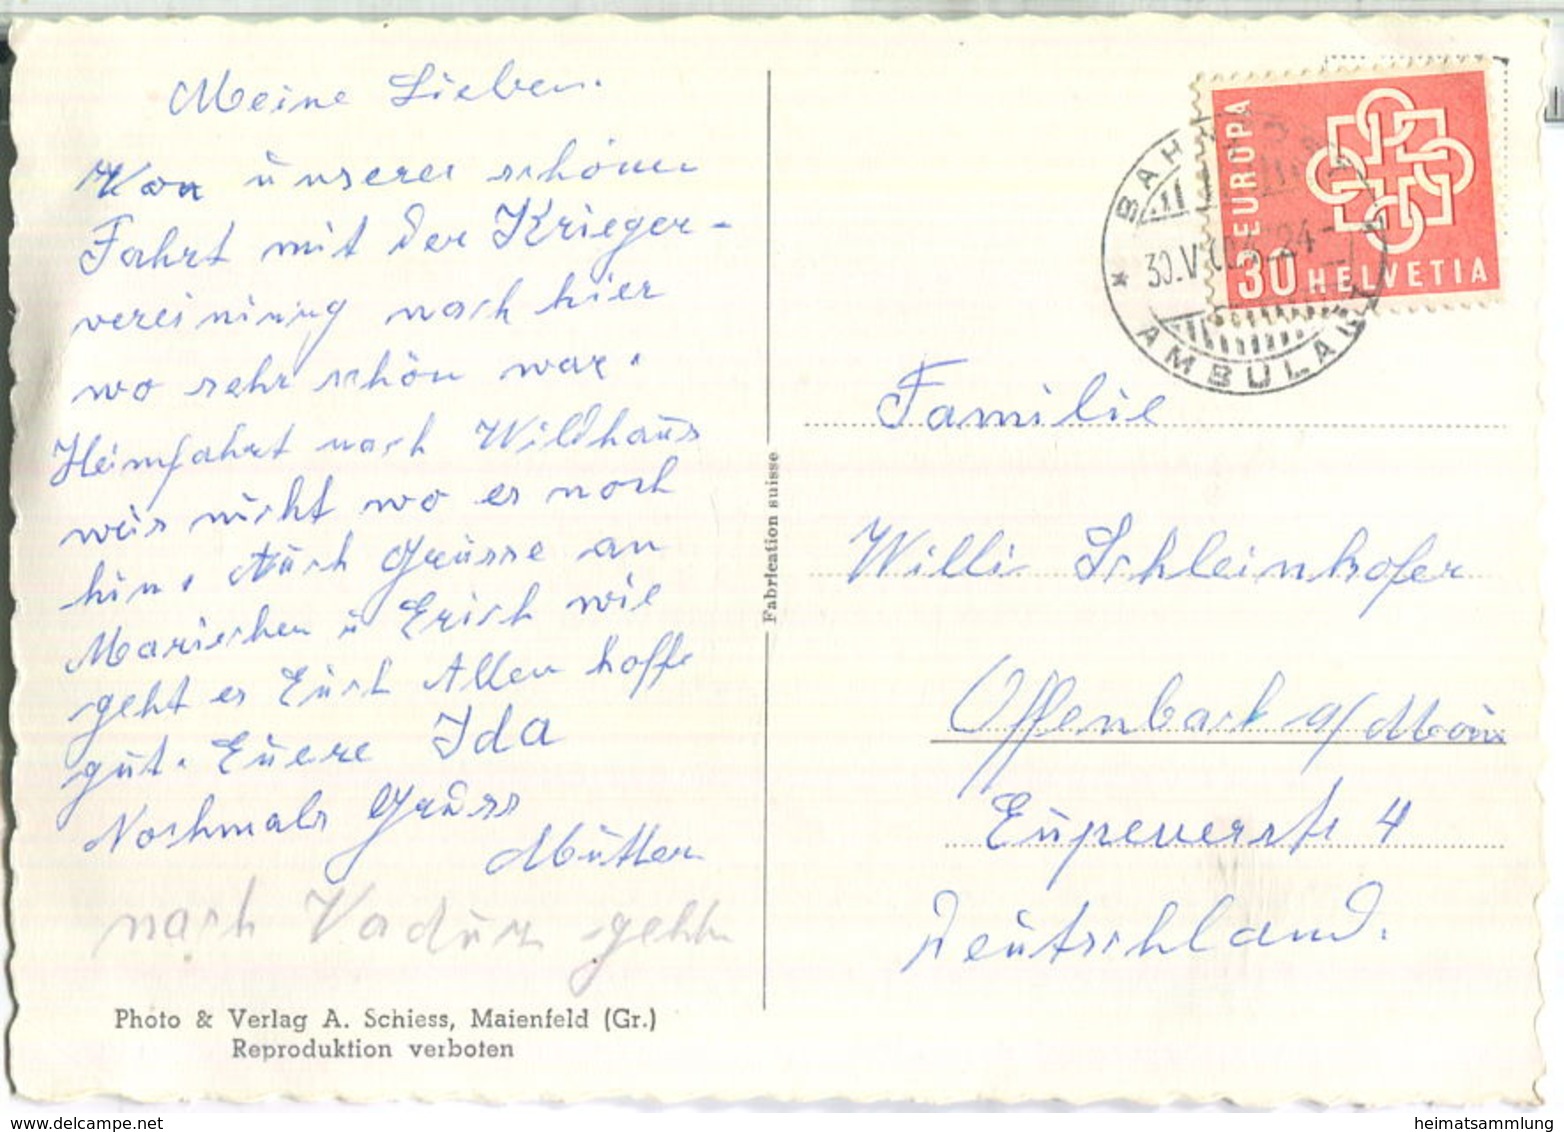 Meine Lieben.
Von unserer schönen
Fahrt mit der Krieger-
vereinigung nach hier
wo sehr schön war.
Heimfahrt nach Wildhaus
weis nicht wo es noch
hin. Auch Grüsse an
Mariechen u Erich wie
geht es Euch Allen hoffe
gut. Euere Ida
Nochmals Gruss
Mutter
nach Vaduz gehts
Photo & Verlag A. Schiess, Maienfeld (Gr.)
Reproduktion verboten
Fabrication suisse
EUROPA
30 HELVETIA
BAHNPOST
30.V.
24
AMBULANT
Familie
Willi Schleinkofer
Offenbach a/Main
Eupenerstr 4
Deutschland.
www.delcampe.net
heimatsammlung